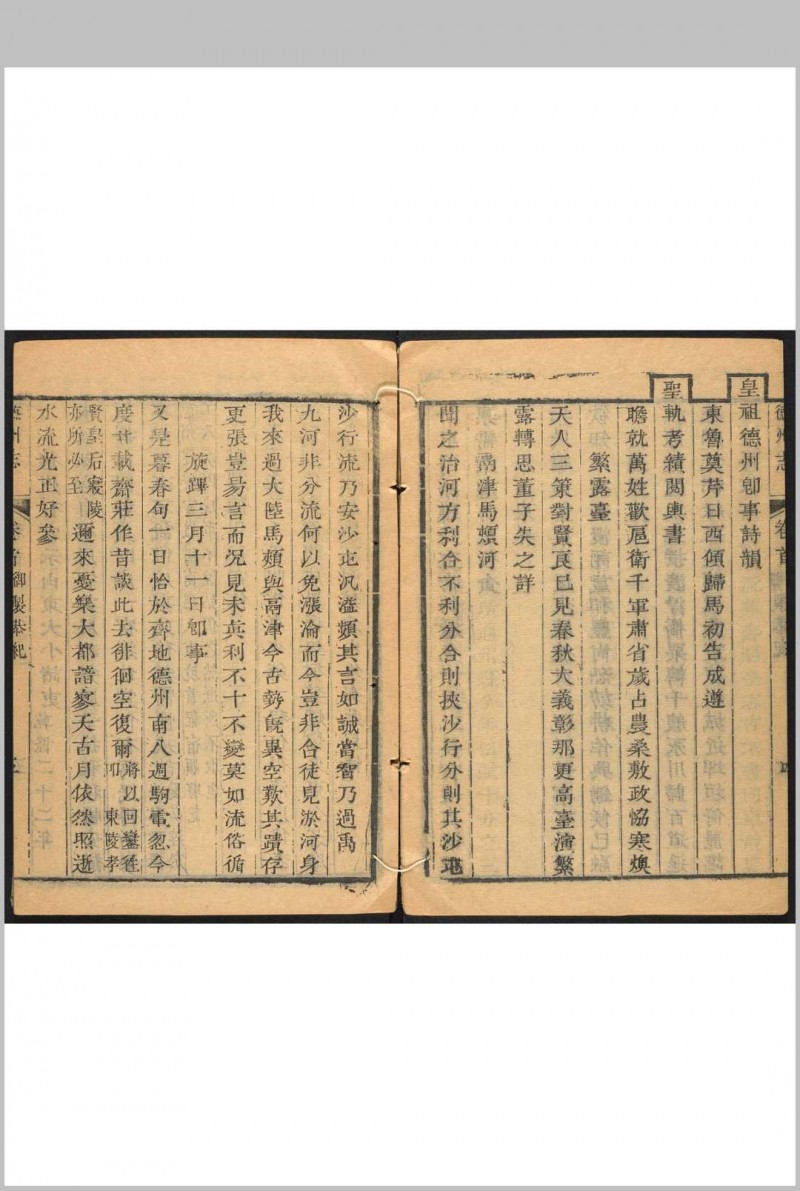 德州志
卷首
皇祖德州卽事詩韻
東魯奠芹日西傾歸馬初告成遵
聖軌考績閱輿書
瞻就萬姓歡扈衛千軍肅省歲占農桑敷政恊寒燠
繁露臺
天人三策對賢良已見春秋大義彰那更高臺演繁
露轉思董子失之詳
鬲津馬頰河
聞之治河方利合不利分合則挾沙行分則其沙墝
沙行流乃安沙屯汎溢頻其言如誠當智乃過禹
九河非分流何以免漲淪而今豈非合徒見淤河身
我來過大陸馬頰與鬲津今古勢旣異空歎其蹟存
更張豈易言而況見未眞利不十不變莫如流俗循
旋蹕三月十一日卽事
又是暮春旬一日恰於齊地德州南八週駒電忽今
度廿載齋莊作昔談此去徘徊空復爾將以回鑾往
叩東陵孝
賢皇后寢陵
亦所必至邇來憂樂大都諳寥天古月依然照逝
水流光正好參
德州志
卷首御製恭紀